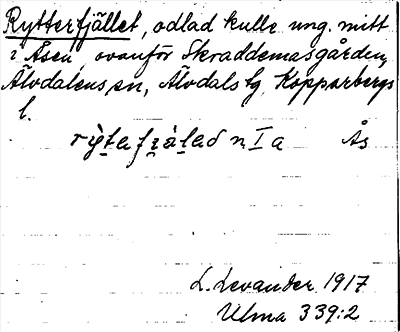 Rytterfjället, odlad kulle ung. mitt
i Åsen, ovanför Skraddemasgården,
Älvdalens sn, Älvdals tg, Kopparbergs
l.
Ås
L. Levander 1917
Ulma 339:2